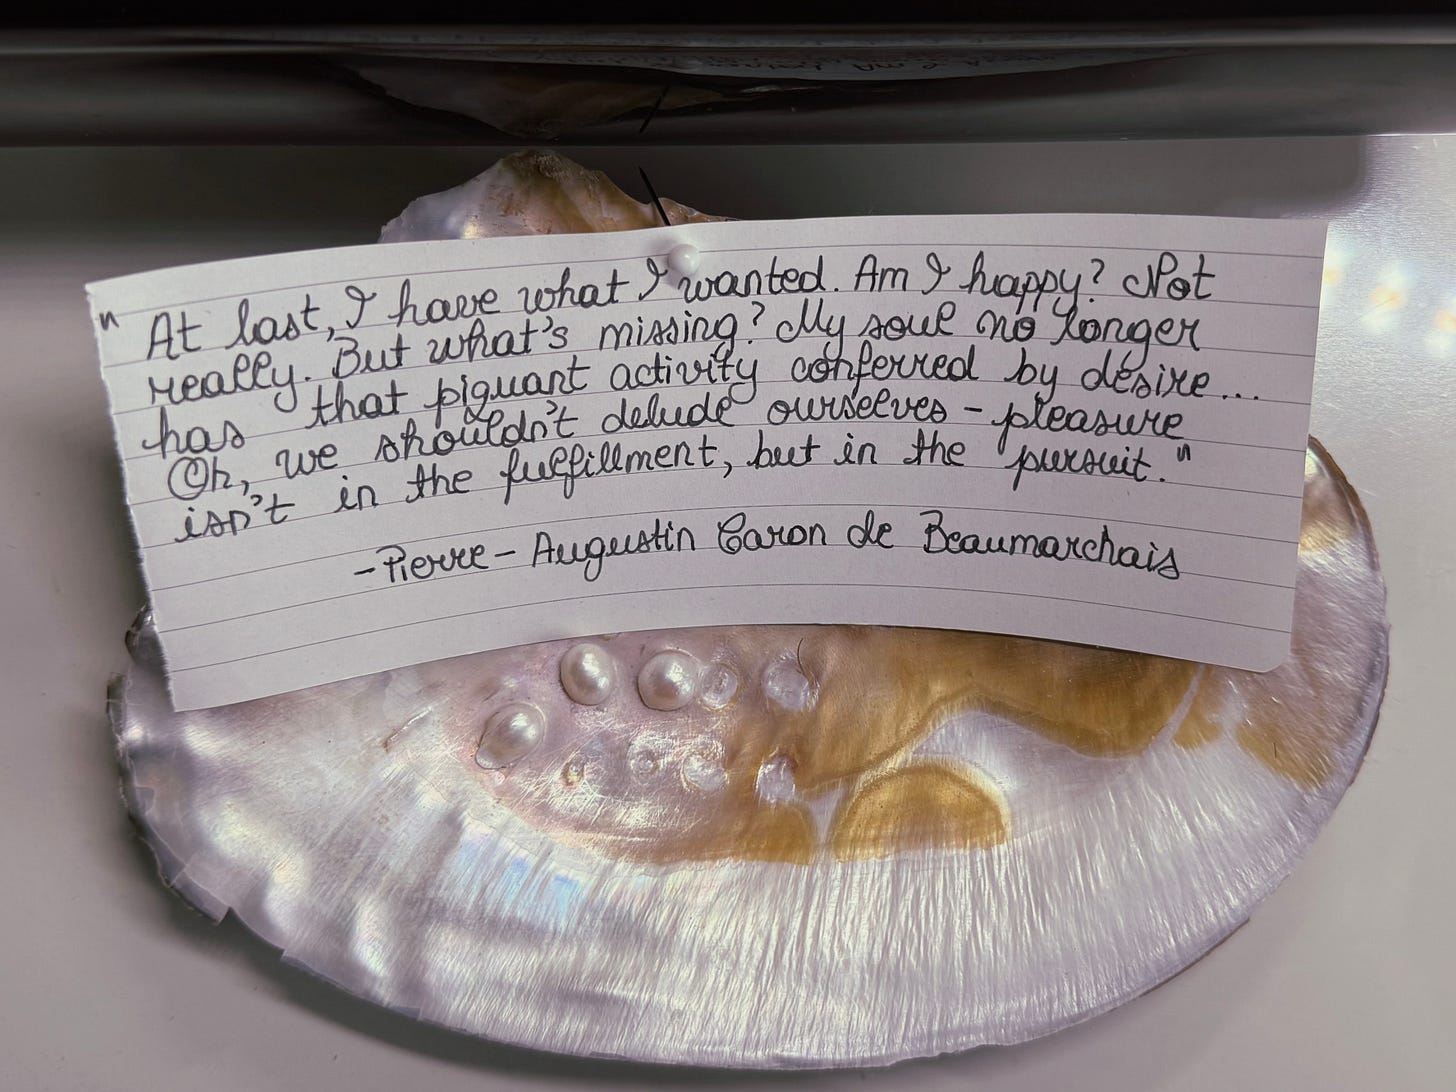 " At last, I have what I wanted. Am I happy? Not
really. But what's missing? My soul no longer
has that piquant activity conferred by desire...
Oh, we shouldn't delude ourselves - pleasure
isn't in the fulfillment, but in the pursuit."
- Pierre - Augustin Caron de Beaumarchais